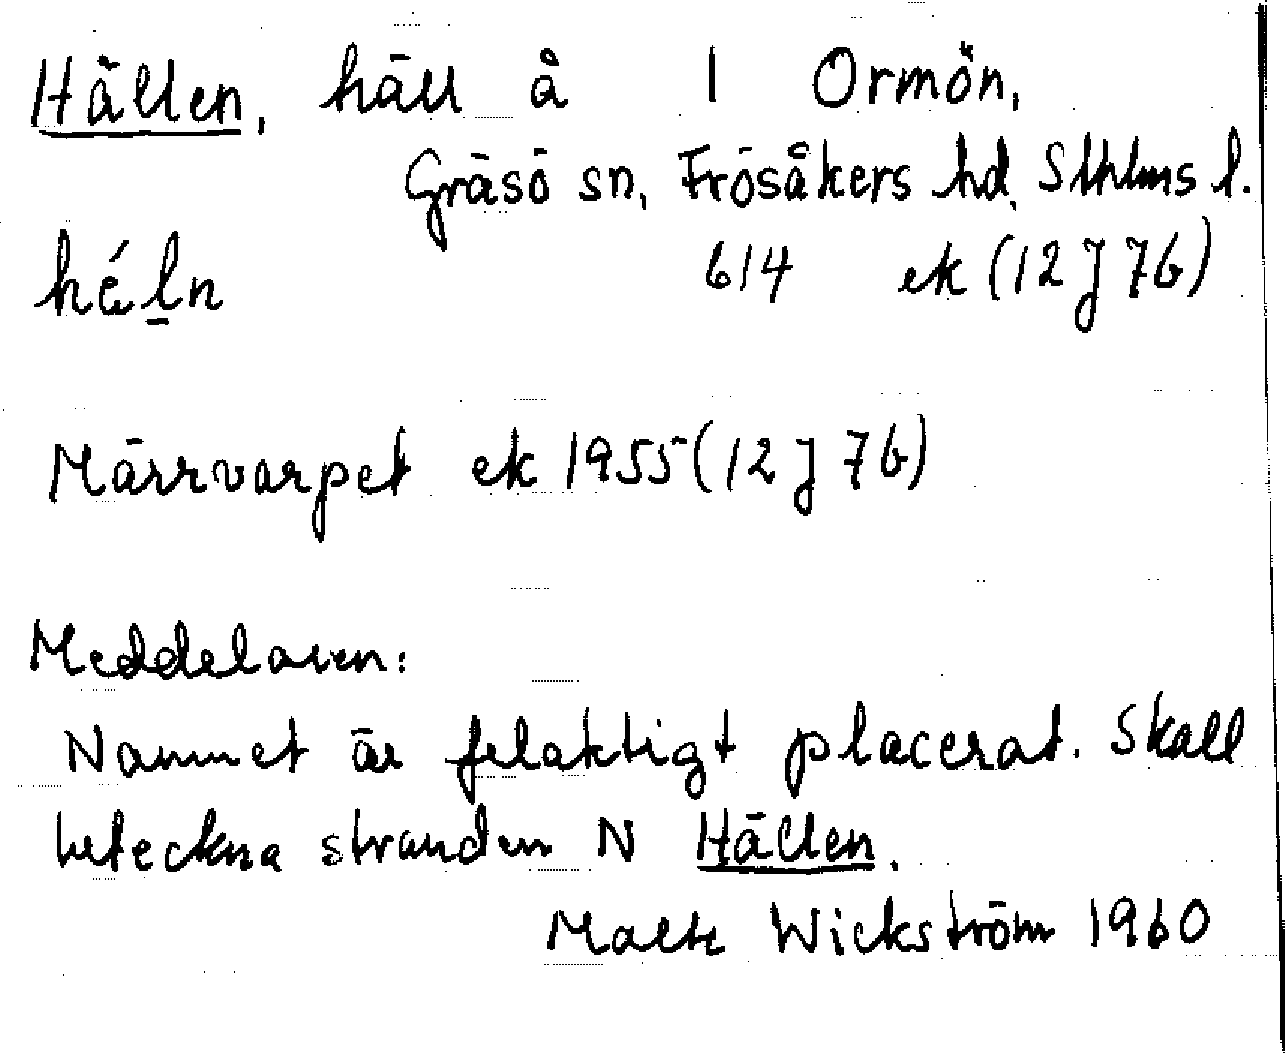 Hällen, häll å 1 Ormön,
Gräsö sn, Frösåkers hd, Sthlms l.
hé̩l̠n 614 ek (12 J 7b)
Märrvarpet ek 1955 (12 J 7b)
Meddelaren:
Namnet är felaktigt placerat. Skall
beteckna stranden N Hällen.
Malte Wickström 1960